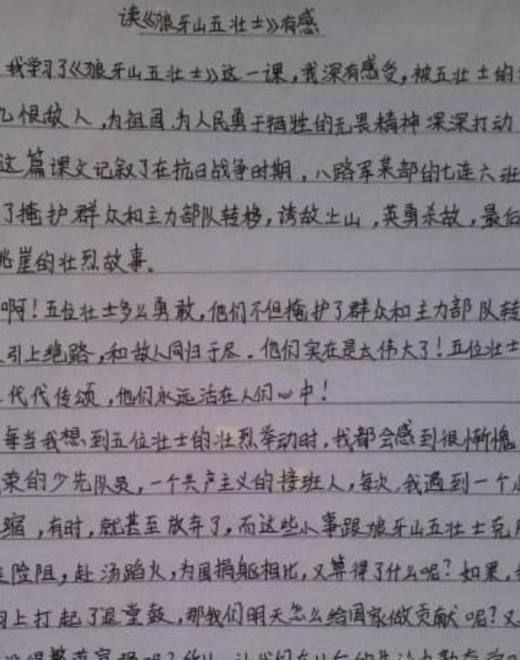 读《狼牙山五壮士》有感
我学习了《狼牙山五壮士》这一课,我深有感受,被五壮士的
仇恨敌人,为祖国为人民勇于牺牲的无畏精神深深打动
这篇课文记叙了在抗日战争时期,八路军某部的七连六班
了掩护群众和主力部队转移,诱敌上山,英勇杀敌,最后
跳崖的壮烈故事。
啊!五位壮士多么勇敢,他们不但掩护了群众和主力部队转
引上绝路,和敌人同归于尽.他们实在是太伟大了!五位壮士
代代传颂,他们永远活在人们心中!
每当我想到五位壮士的壮烈举动时,我都会感到很惭愧
荣的少先队员,一个共产主义的接班人,每次,我遇到一个小
缩,有时,就甚至放弃了,而这些小事跟狼牙山五壮士克服
险阻,赴汤蹈火,为国捐躯相比,又算得了什么呢?如果,
上打起了退堂鼓,那我们明天怎么给国家做贡献呢?又